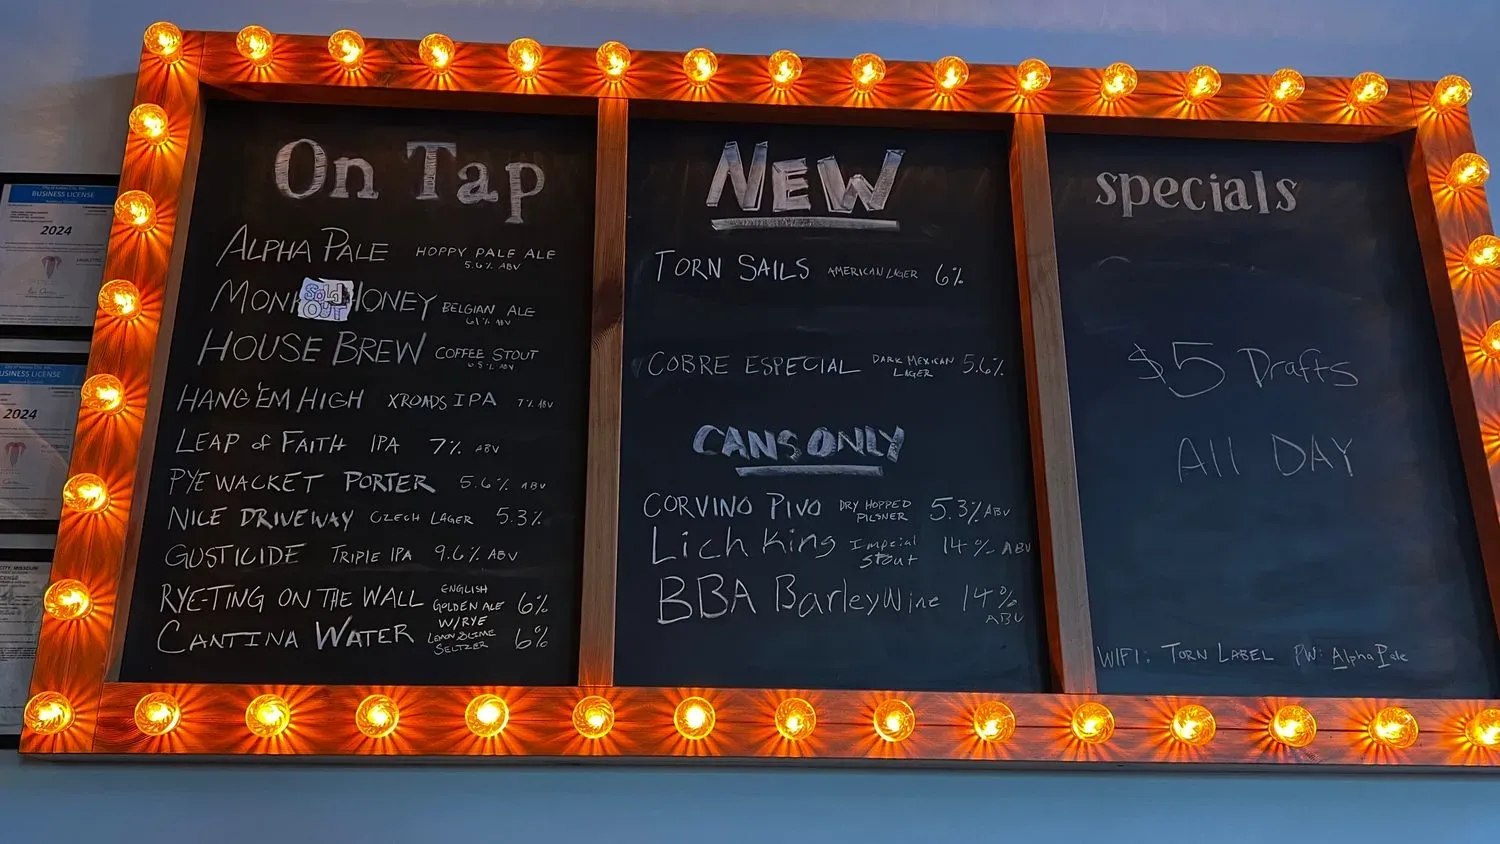 On Tap
ALPHA PALE HOPPY PALE ALE
5.6% ABV
MONK HONEY BELGIAN ALE
SOLD
OUT
6.1% ABV
HOUSE BREW COFFEE STOUT
6.5% ABV
HANG 'EM HIGH XROADS IPA 7% ABV
LEAP of FAITH IPA 7% ABV
PYEWACKET PORTER 5.6% ABV
NICE DRIVEWAY CZECH LAGER 5.3%
GUSTICIDE TRIPLE IPA 9.6% ABV
RYE-TING ON THE WALL ENGLISH
GOLDEN ALE
W/RYE 6%
CANTINA WATER LEMON & LIME
SELTZER 6%
NEW
TORN SAILS AMERICAN LAGER 6%
COBRE ESPECIAL DARK MEXICAN
LAGER 5.6%
CANS ONLY
CORVINO PIVO DRY HOPPED
PILSNER 5.3% ABV
Lich King Imperial
Stout 14% ABV
BBA BarleyWine 14%
ABV
specials
$5 Drafts
All DAY
WIFI: TORN LABEL PW: AlphaPale
BUSINESS LICENSE
2024
BUSINESS LICENSE
2024
CITY, MISSOURI